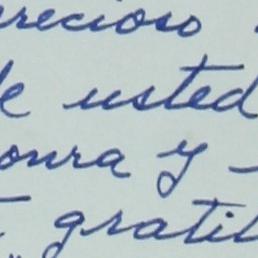 precioso
de usted
onra y
gratit